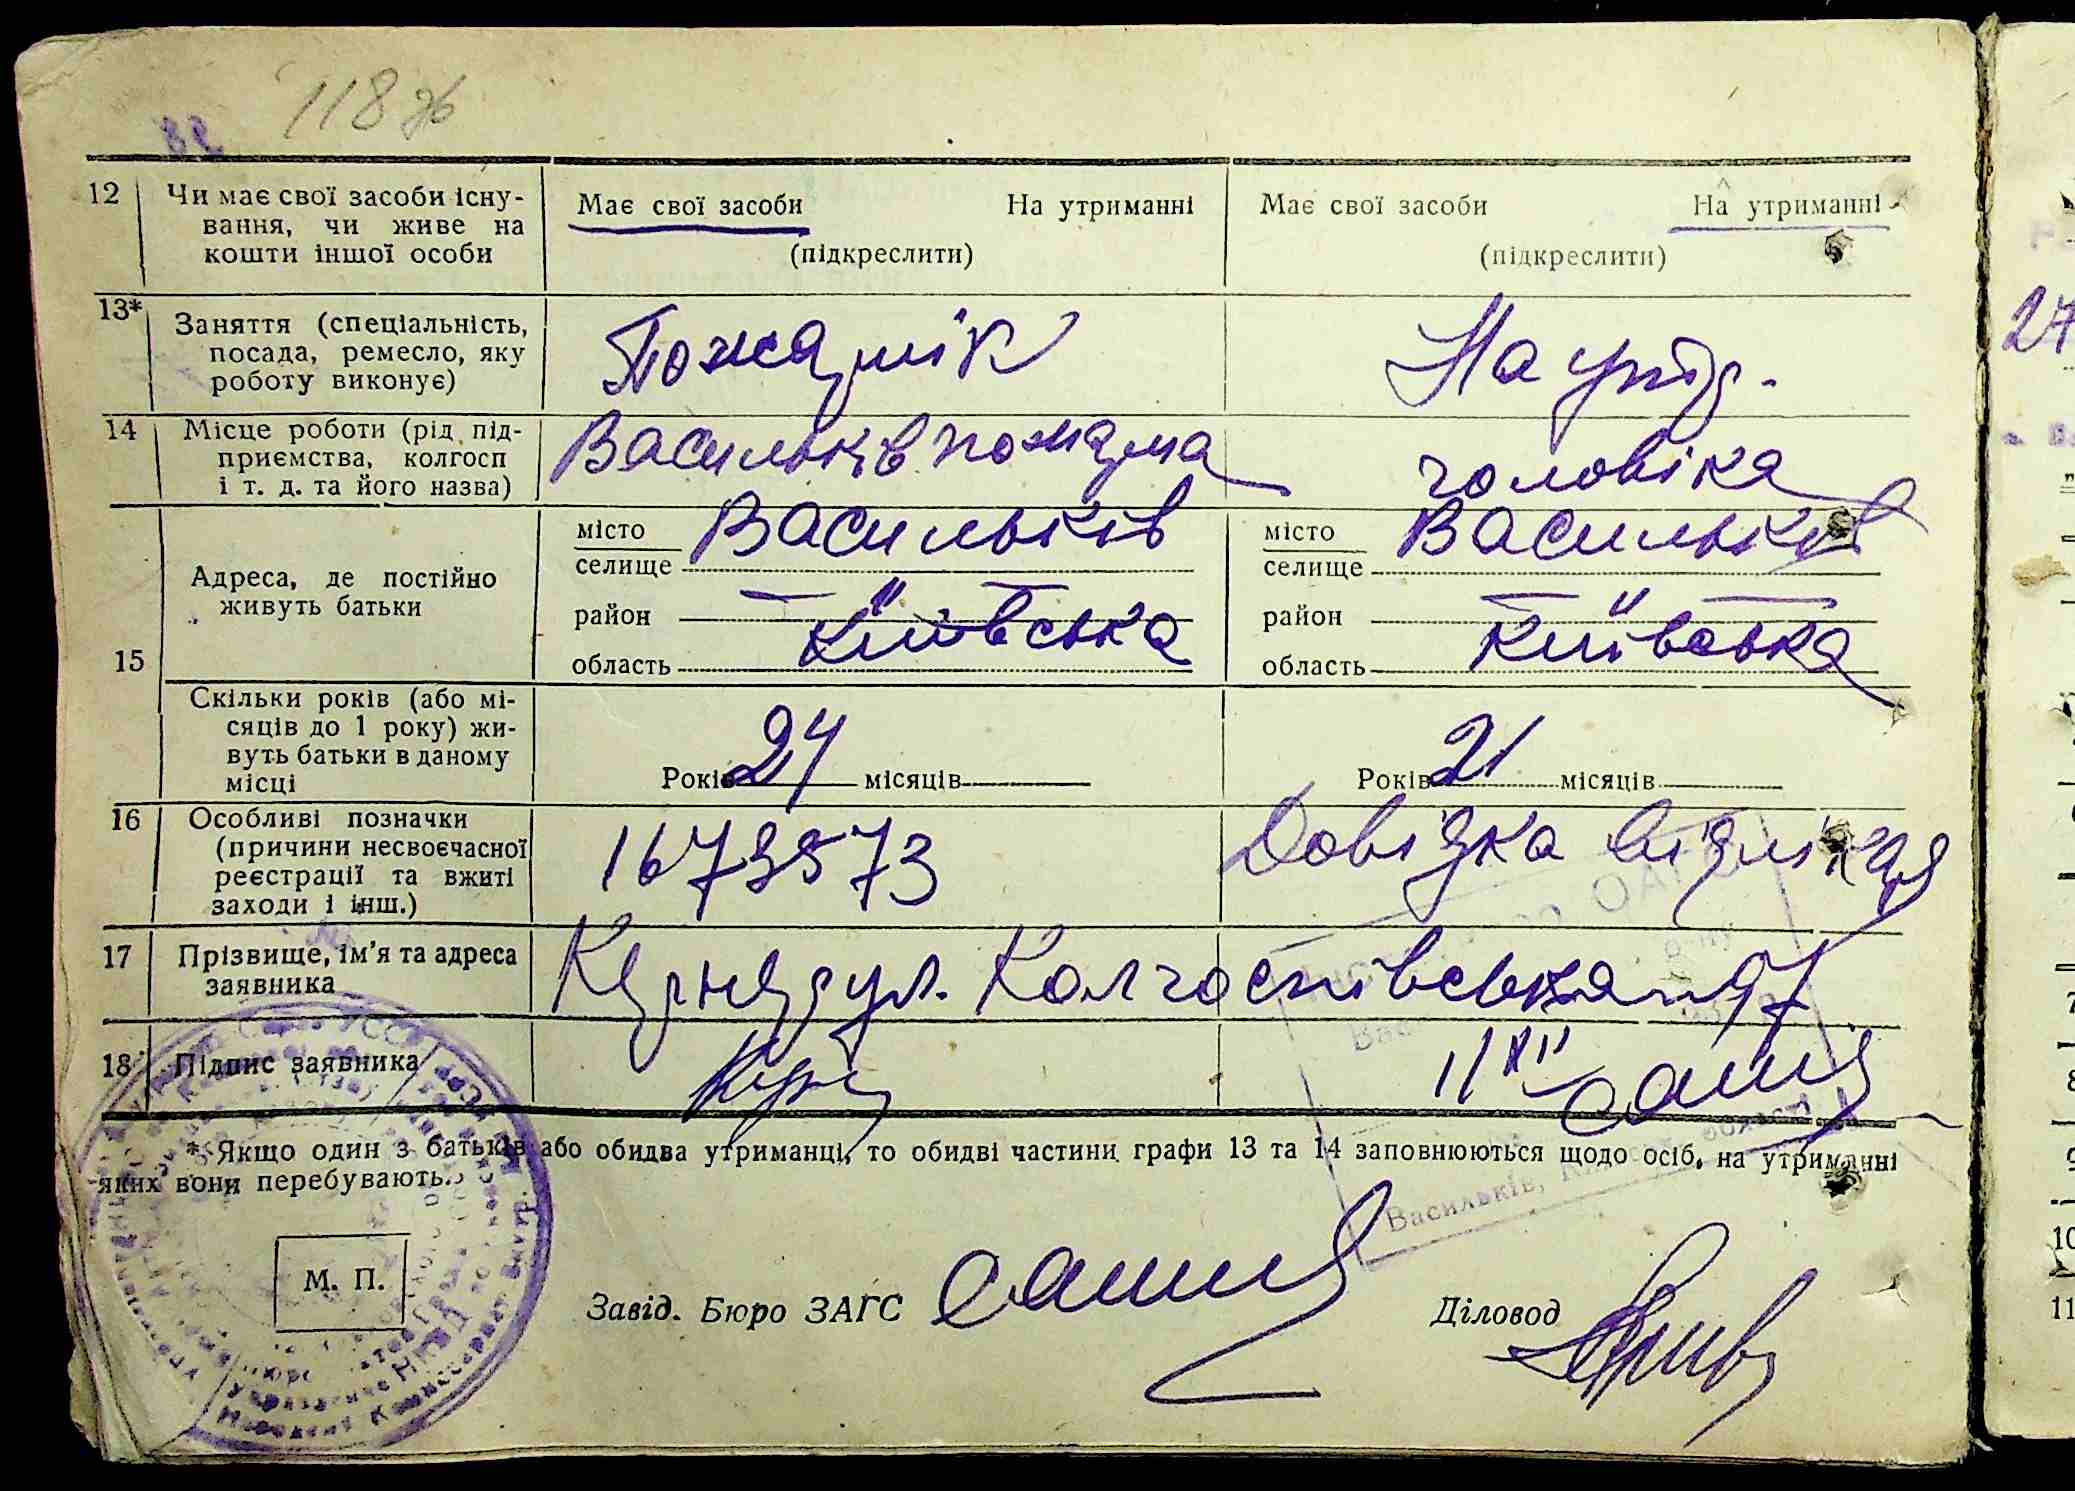 118 зв
12 Чи має свої засоби існу-
вання, чи живе на
кошти іншої особи
Має свої засоби На утриманні
(підкреслити)
Має свої засоби На утриманні
(підкреслити)
13* Заняття (спеціальність,
посада, ремесло, яку
роботу виконує)
Пожарнік
На утр.
14 Місце роботи (рід під-
приємства, колгосп
і т. д. та його назва)
Васильків пожарна
чоловіка
15 Адреса, де постійно
живуть батьки
місто Васильків
селище
район —
область Київська
місто Васильків
селище
район —
область Київська
Скільки років (або мі-
сяців до 1 року) жи-
вуть батьки в даному
місці
Років 24 місяців
Років 21 місяців
16 Особливі позначки
(причини несвоєчасної
реєстрації та вжиті
заходи і інш.)
Довідка від лікаря
17 Прізвище, ім'я та адреса
заявника
вул. Колгоспівська 97
18 Підпис заявника
* Якщо один з батьків або обидва утриманці, то обидві частини графи 13 та 14 заповнюються щодо осіб, на утриманні
яких вони перебувають.
М. П.
Завід. Бюро ЗАГС
Діловод